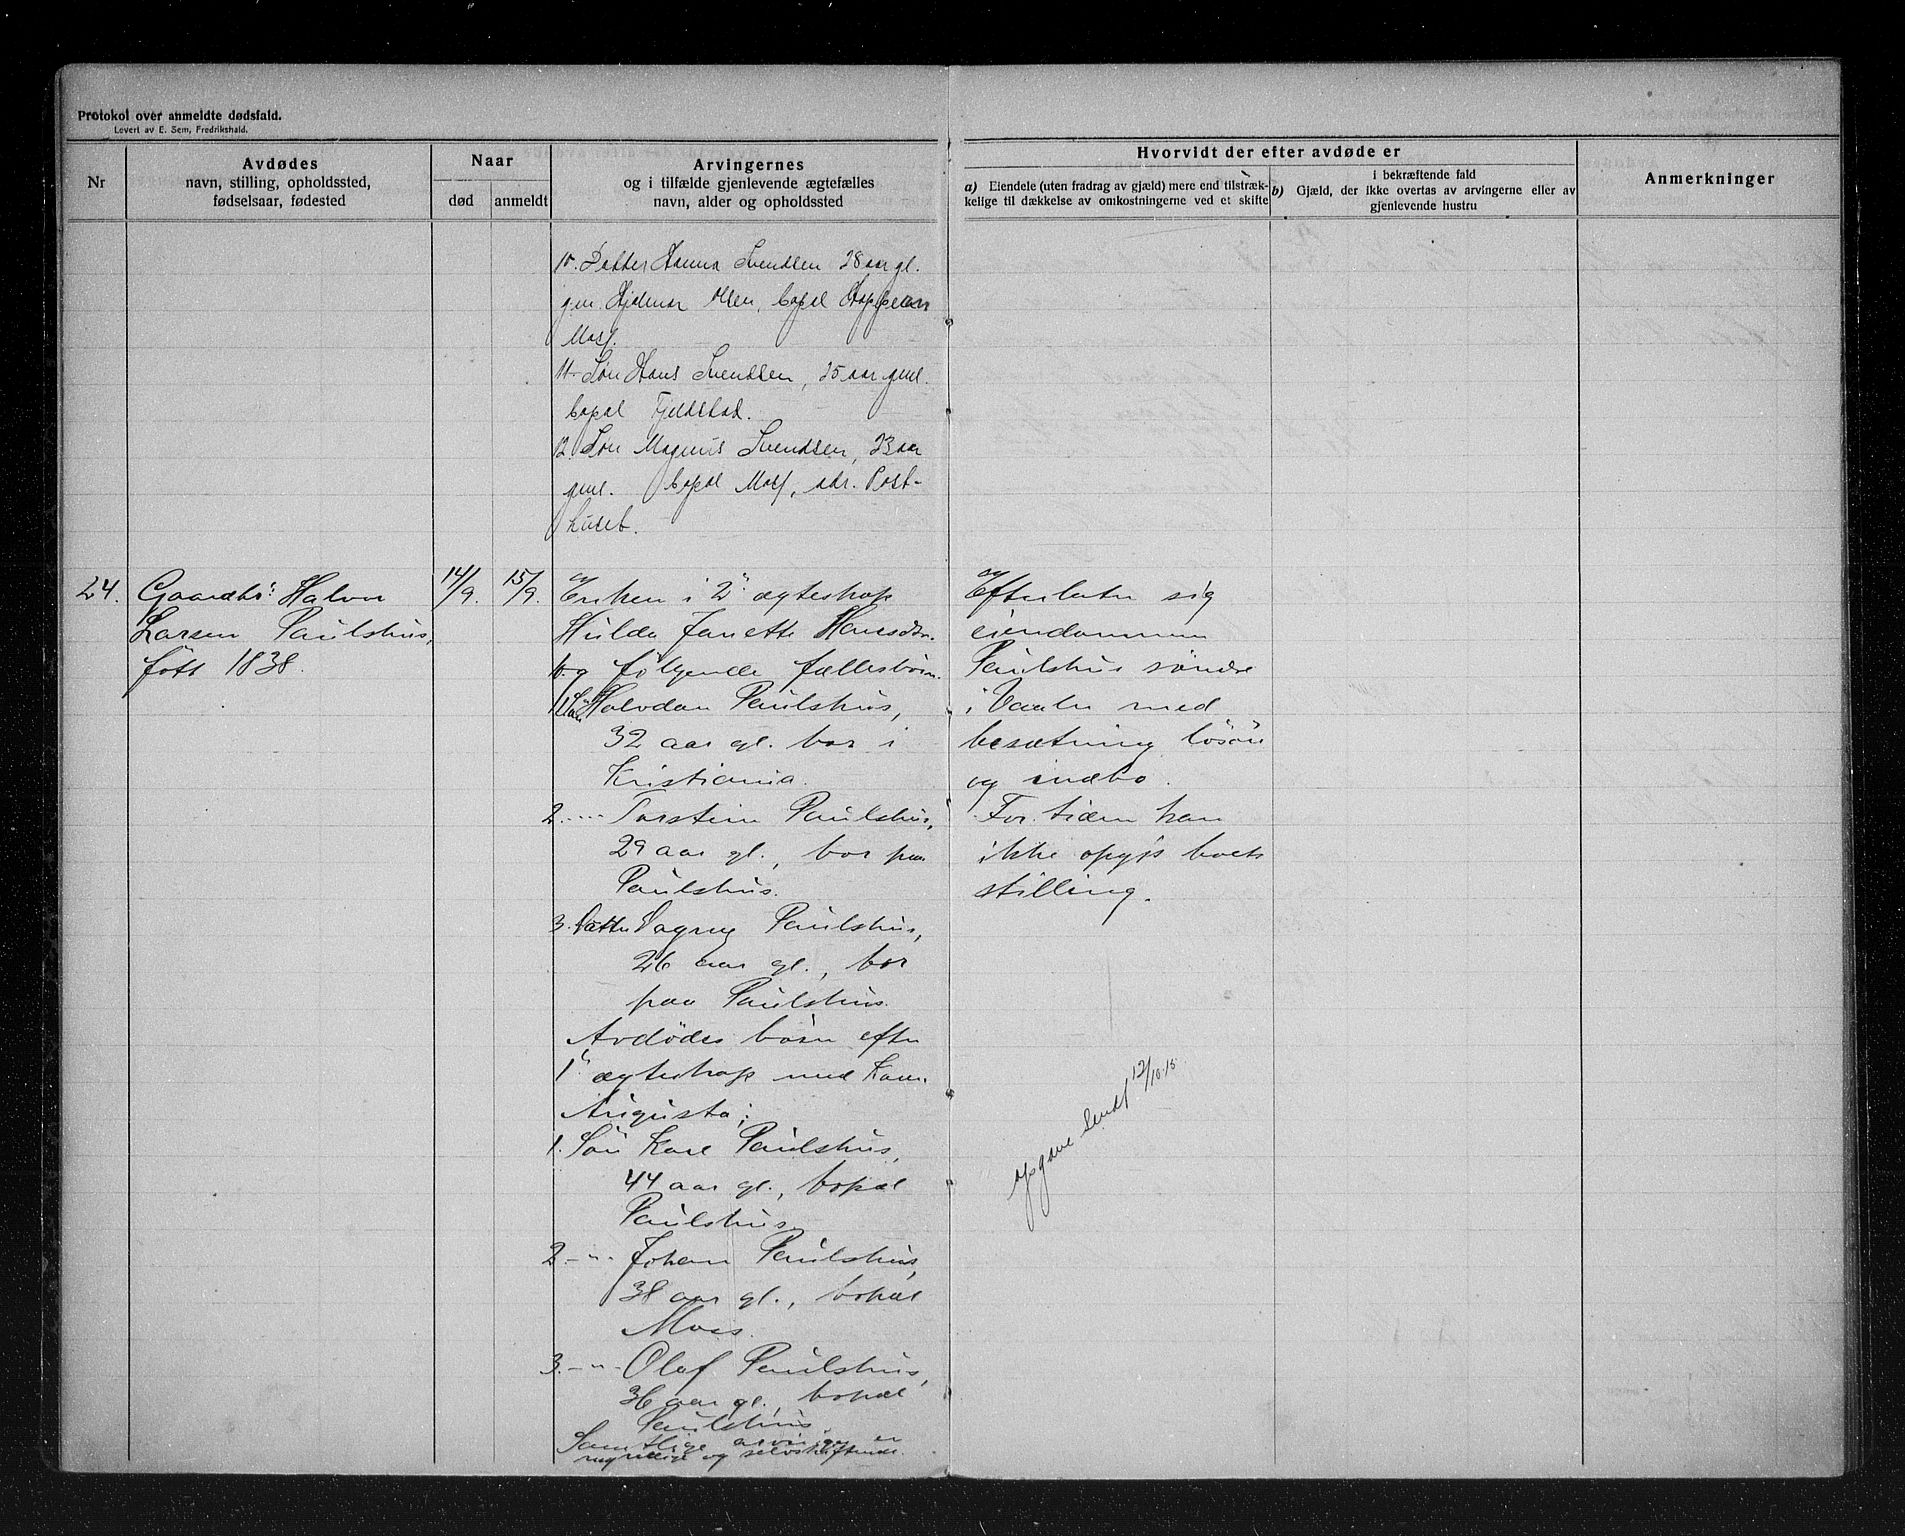 Protokol over anmeldte dødsfald.
Levert av E. Sem, Fredrikshald.
Nr
Avdødes
navn, stilling, opholdssted,
fødselsaar, fødested
Naar
død
anmeldt
Arvingernes
og i tilfælde gjenlevende ægtefælles
navn, alder og opholdssted
Hvorvidt der efter avdøde er
a) Eiendele (uten fradrag av gjæld) mere end tilstræk-
kelige til dækkelse av omkostningerne ved et skifte
i bekræftende fald
b) Gjæld, der ikke overtas av arvingerne eller av
gjenlevende hustru
Anmerkninger
10. Datter Hanna Svendsen 28 aar gl.
gm. Hjalmar Olsen, bopæl
Moss.
11. Søn Hans Svendsen, 25 aar gml.
bopæl Fjeldstad.
12. Søn Magnus Svendsen, 23 aar
gml. bopæl Moss, adr. Post-
huset.
24.
Gaardbr: Halvor
Larsen Paulshus,
født 1838.
14/9.
15/9.
Enken i 2' ægteskap
Hulda Janette Hansdtr.
og følgende fællesbörn.
1. Søn Halvdan Paulshus,
32 aar gl. bor i
Kristiania.
2. -"- Torstein Paulshus,
29 aar gl., bor paa
Paulshus.
3. Datter Dagny Paulshus,
26 aar gl., bor
paa Paulshus.
Avdödes börn efter
1' ægteskap med Karen
Augusta;
1. Sön Karl Paulshus,
44 aar gl., bopæl
Paulshus.
2. -"- Johan Paulshus,
38 aar gl., bopæl
Moss.
3. -"- Olaf Paulshus,
36 aar gl., bopæl
Paulshus
Samtlige arvinger er
myndige og selvskiftende.
Efterlater sig
eiendommen
Paulshus söndre
i Vaaler med
besætning lösöre
og indbo.
For tiden kan
ikke opgis boets
stilling.
opgave sendt 12/10.15